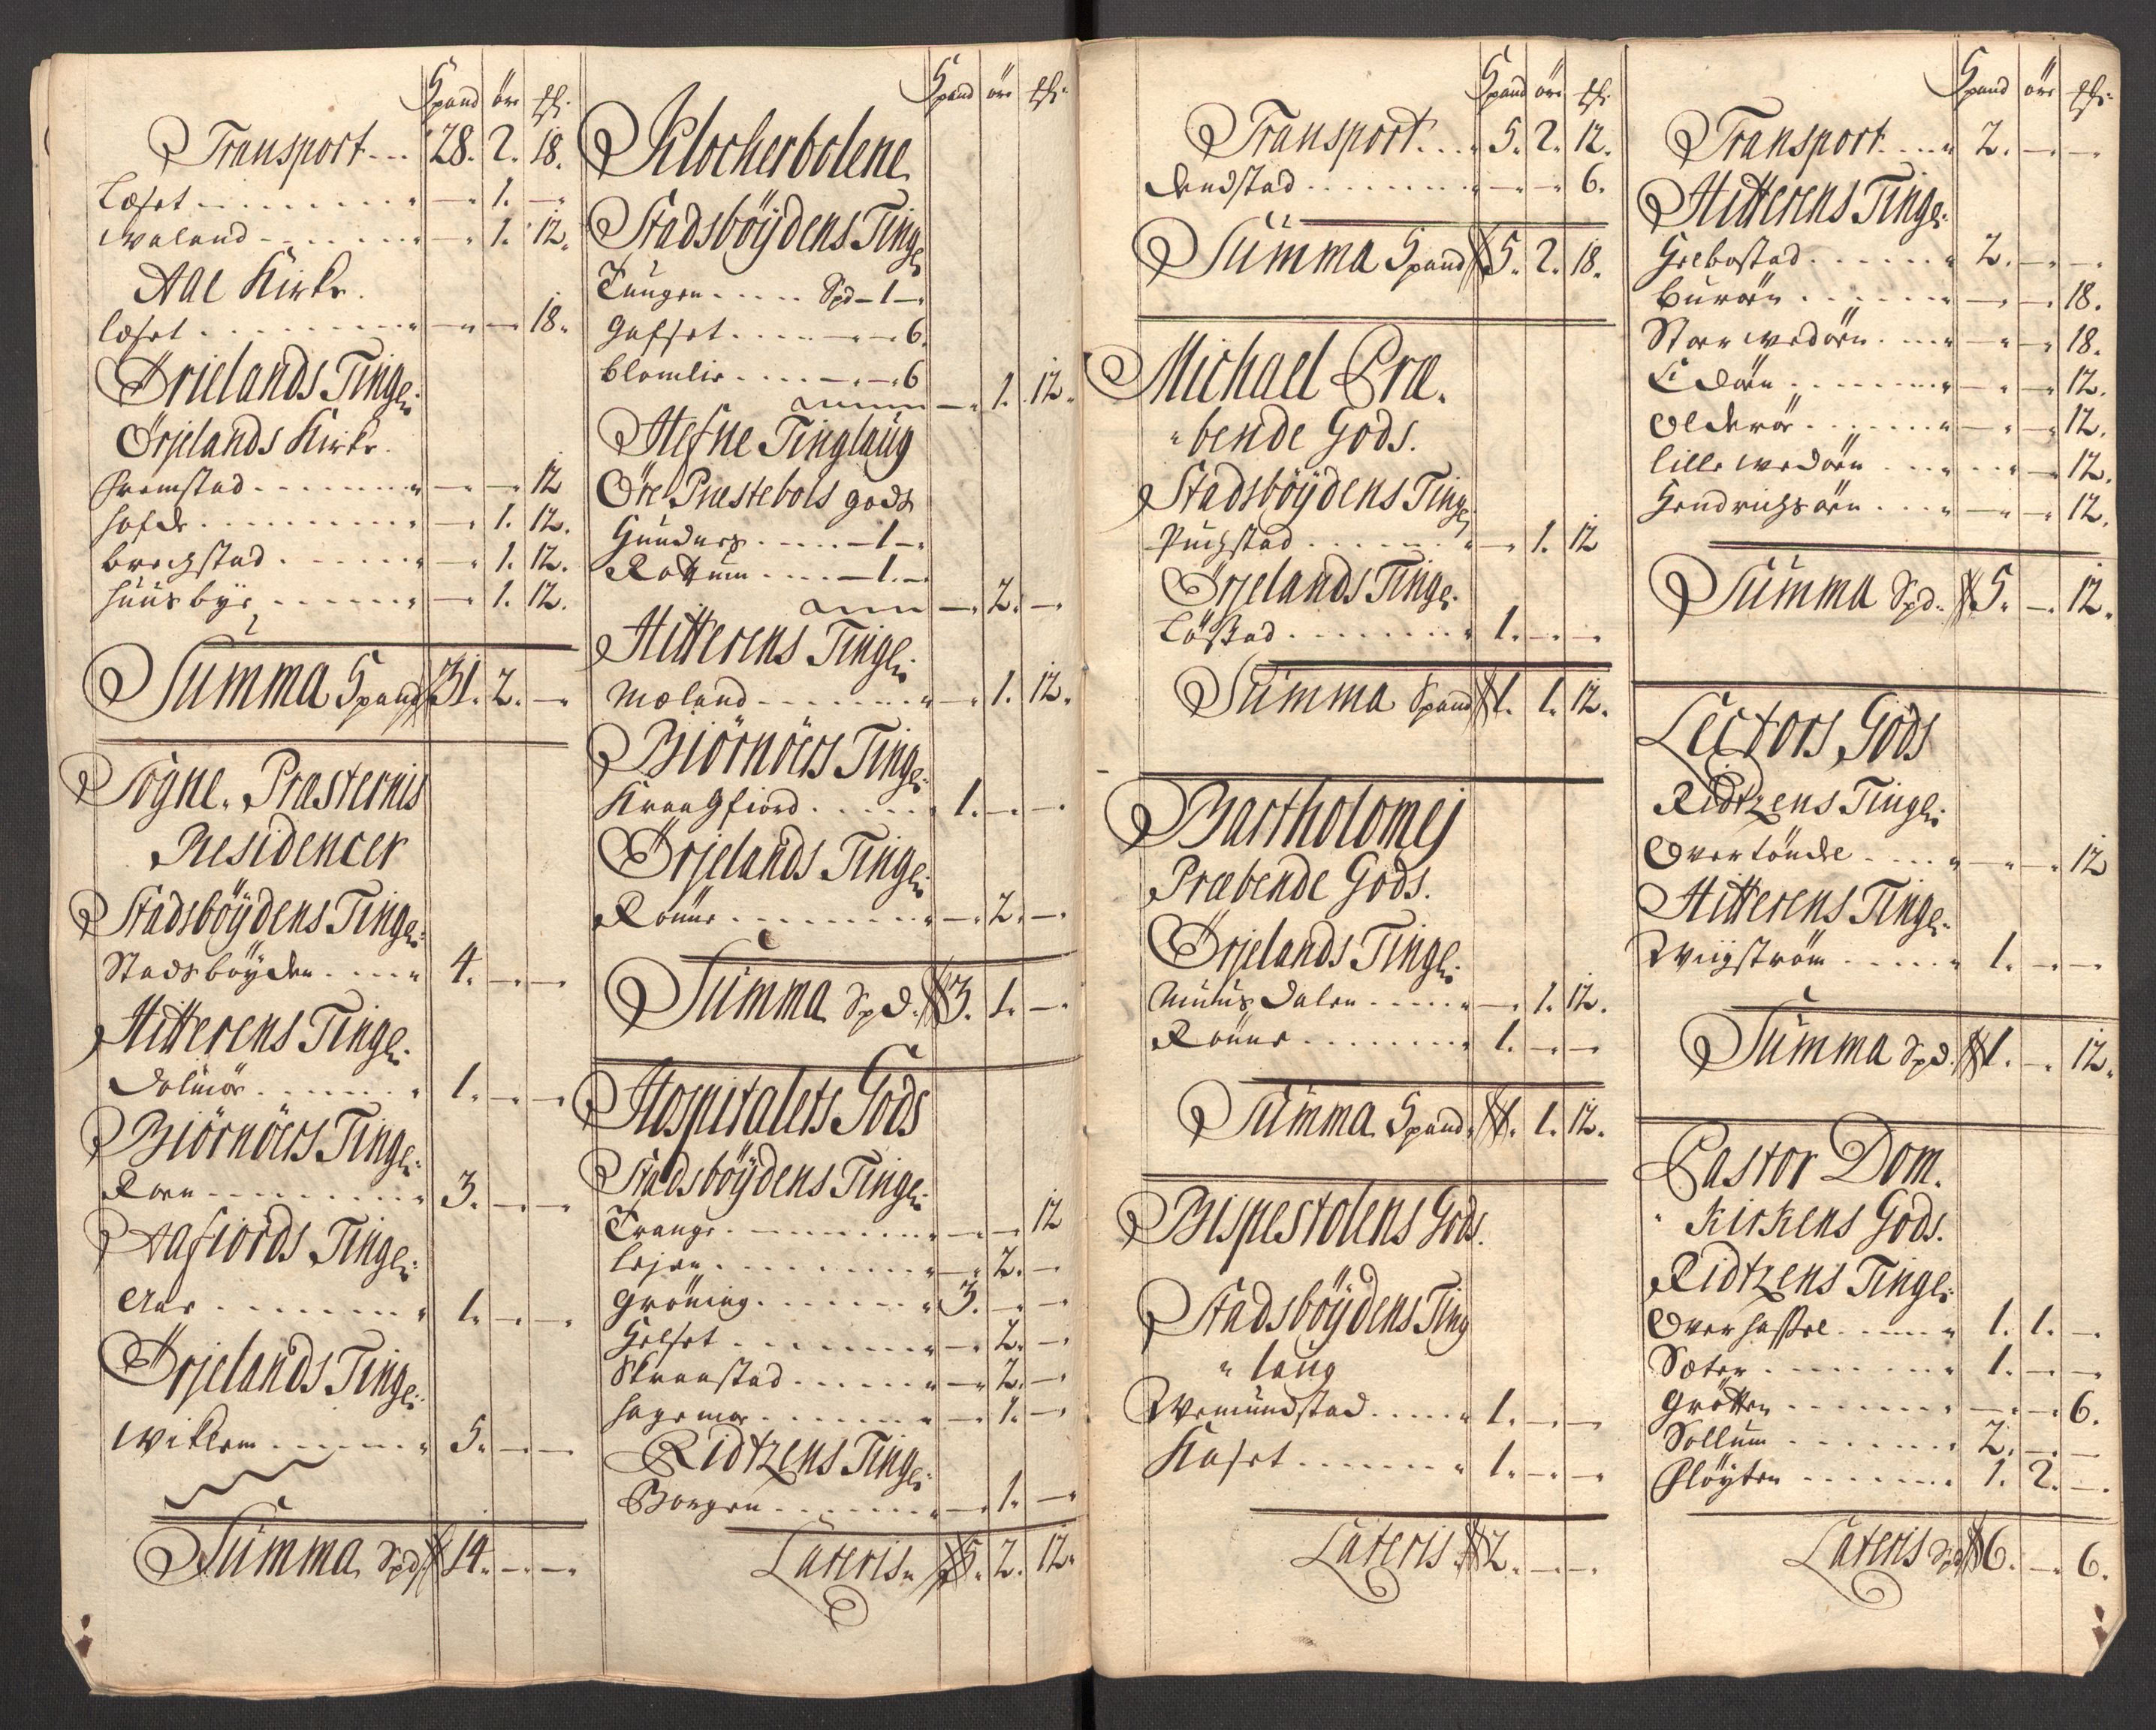 Spand öre
Transport 28. 2. 18.
Læset — 1. —
Waland — 1. 12.
Aae Kirke.
Læset — — 18.
Örjelands Tingl:
Örjelands Kirke.
Fremstad — — 12
Hofde — 1. 12.
Brechstad — 1. 12.
Huusbye — 1. 12.
Summa Spand 31. 2. —
Sogne Præsternis
Residencer
Stadsböydens Tingl:
Stadsböyden 4. — —
Hitterens Tingl:
Dolmör 1. — —
Biörnöers Tingl:
Roen 3. — —
Aafiords Tingl:
Aae 1. — —
Örjelands Tingl:
Wiklem 5. — —
Summa Spd 14. — —
Spand öre
Klocherbolene
Stadsböydens Tingl
Tungen Spd — 1 —
Gafset — — 6.
Blomlie — — 6
— 1. 12.
Hefne Tinglaug
Öre Præstebols gods
Gunders — 1 —
Rottum — 1. —
— 2. —
Hitterens Tingl:
Mæland — 1. 12.
Biörnöers Tingl:
Kraagfiord 1. — —
Örjelands Tingl:
Rönne — 2. —
Summa Spd. 3. 1. —
Hospitalets Gods
Stadsböydens Tingl:
Trange — — 12
Lejen — 2. —
Gröning 3. — —
Helset — 2. —
Skraastad — 2. —
Hagemoe — 1. —
Ridtzens Tingl:
Borgen — 1. —
Lateris 5. 2. 12.
Spand öre
Transport 5. 2. 12.
Dendstad — — 6.
Summa Spand 5. 2. 18.
Michael Præ-
bende Gods.
Stadsböydens Tingl
Puchstad — 1. 12
Örjelands Tingl.
Löstad 1. — —
Summa Spand 1. 1. 12.
Bartholomej
Præbende Gods.
Örjelands Tingl:
Muusdalen — 1. 12.
Rönne 1. — —
Summa Spand 1. 1. 12.
Bispestolens Gods.
Stadsböydens Ting
laug
Wemundstad 1. — —
Kaset 1. — —
Lateris 2. — —
Spand öre
Transport 2. — —
Hitterens Tingl:
Heebostad 2. — —
Buröen — — 18.
Store Wedöen — — 18.
Edöen — — 12.
Olderöe — — 12.
Lille Wedöen — — 12.
Hendrichsöen — — 12.
Summa Spd. 5. — 12.
Lectors Gods
Ridtzens Tingl:
Overlönde — — 12
Hitterens Tingl:
Wiigström 1. — —
Summa Spd. 1. — 12.
Pastor Dom.
Kirkens Gods.
Ridtzens Tingl:
Overhassel 1. 1. —
Sæter 1. — —
Grötten — — 6.
Sollum 2. — —
Flöyten 1. 2. —
Lateris Spd 6. — 6.